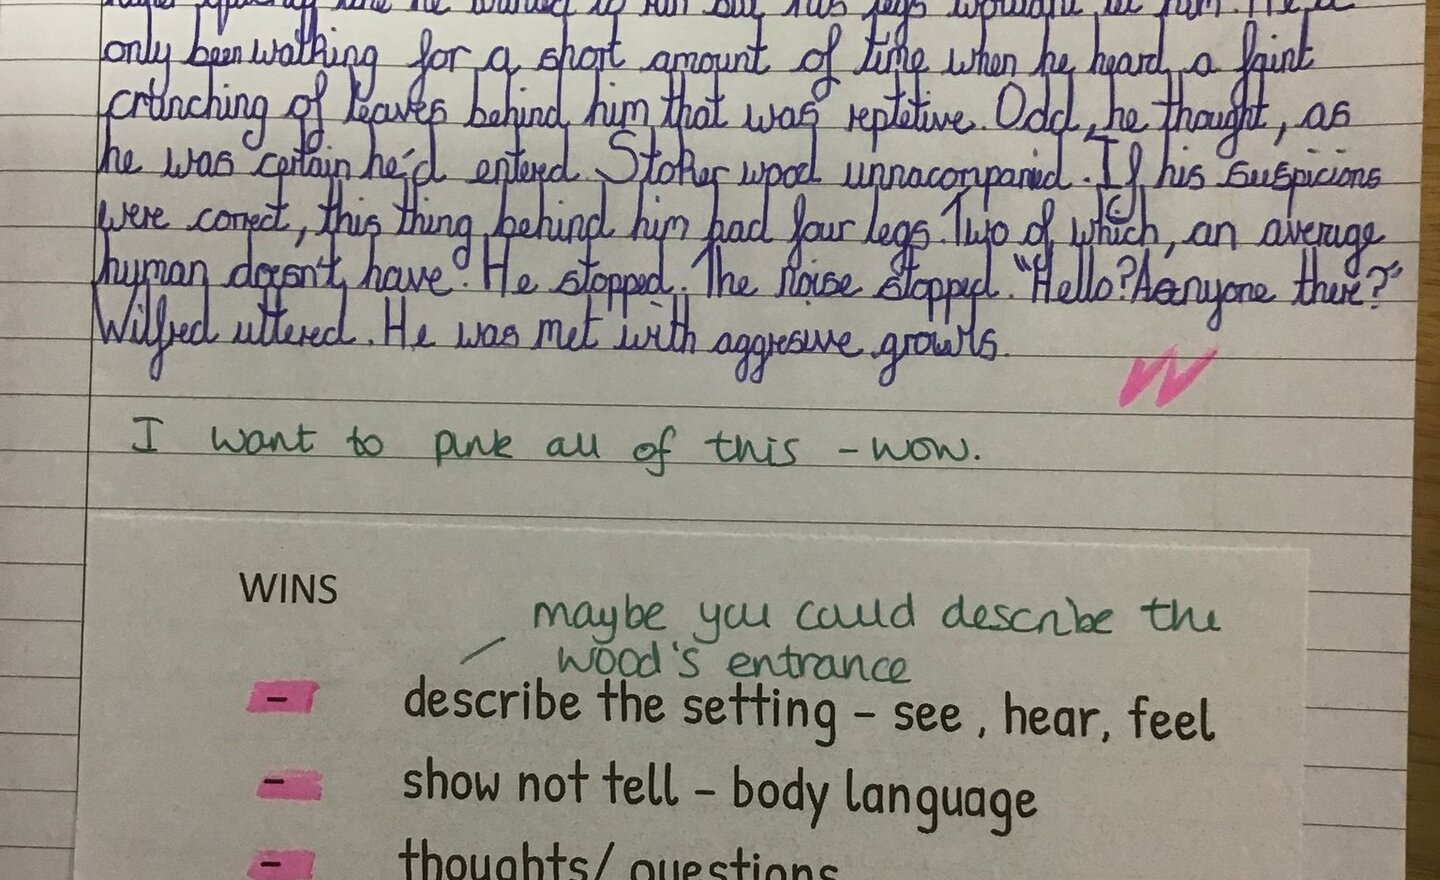 he wanted to run but his legs wouldn't let him. He'd
only been walking for a short amount of time when he heard a faint
crunching of leaves behind him that was reptetive. Odd, he thought, as
he was certain he'd entered Stoker wood unnacompanied. If his suspicions
were correct, this thing behind him had four legs. Two of which, an average
human doesn't have. He stopped. The noise stopped. "Hello? Anyone there?"
Wilfred uttered. He was met with aggresive growls.
I want to pink all of this - wow.
WINS
maybe you could describe the
wood's entrance
- describe the setting - see, hear, feel
- show not tell - body language
- thoughts/ questions